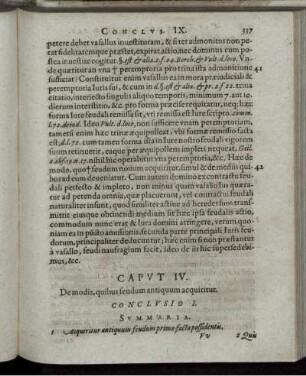 CONCLVS. IX. 337
petere debet vasallus inuestituram, & si ter admonitus non pe-
tat fidelitatemque præstet, expirat actio, nec dominus eum po-
stea inuestire cogitur. §. est & alia. 2. f. 24. Borch. & Vult. d. loco. Vn-
de quæritur an vna † peremptoria pro trina ista admonitione 41
sufficiat? Constituitur enim vasallus ea in mora præiudiciali &
peremptoria Iuris sui, & cum in d. §. est & alia.
citatio, interiectio singulis aliquo temporis, minimum 7 aut 10
dierum interstitio, &c. pro forma præcise requiratur, neq; hæc
forma lore feudali remissa sit, vt remissa est hure scripto
tamets enim hæc trinæ æquipolleat, vbi formæ remissio facta
est, d. l. 70. cum tamen forma disiam lure nostro feudorum rigo-
rem suum retineat, eaque per æquipollens impleri nequeat.
nihil hic operabitur vna peremptoria, &c. Hæc de
modo, quo † feudum nouum acquiritur, simul & de mediis qui- 42
bus ad eum deueniatur. Cum autem dominio ex contractu feu-
dali perfecto & impleto, non minus quam vasallus quæra-
tur ad petenda omnia, quæ placuerunt, vel contractui feudali
naturaliter insunt, quod similiter actiue ad heredes suos trans-
mittit eiusque obtinendi medium sit hæc ipsa feudalis actio,
commodum nunc erat & iura domini attingere, verum quo-
niam ea in pœnis amissionis secunda parte principali Iuris feu-
dorum, principaliter deducuntur; hæc enim si non præstantur
à vasallo, feudi naufragium facit, ideo de iis hic supersedebi-
mus, &c.
CAPVT IV.
De modis, quibus feudum antiquum acquiritur.
CONCLVSIO I.
SVMMARIA.
1 Acquiritur antiquum feudum primo facto possidentis.
Vv 2 Quin